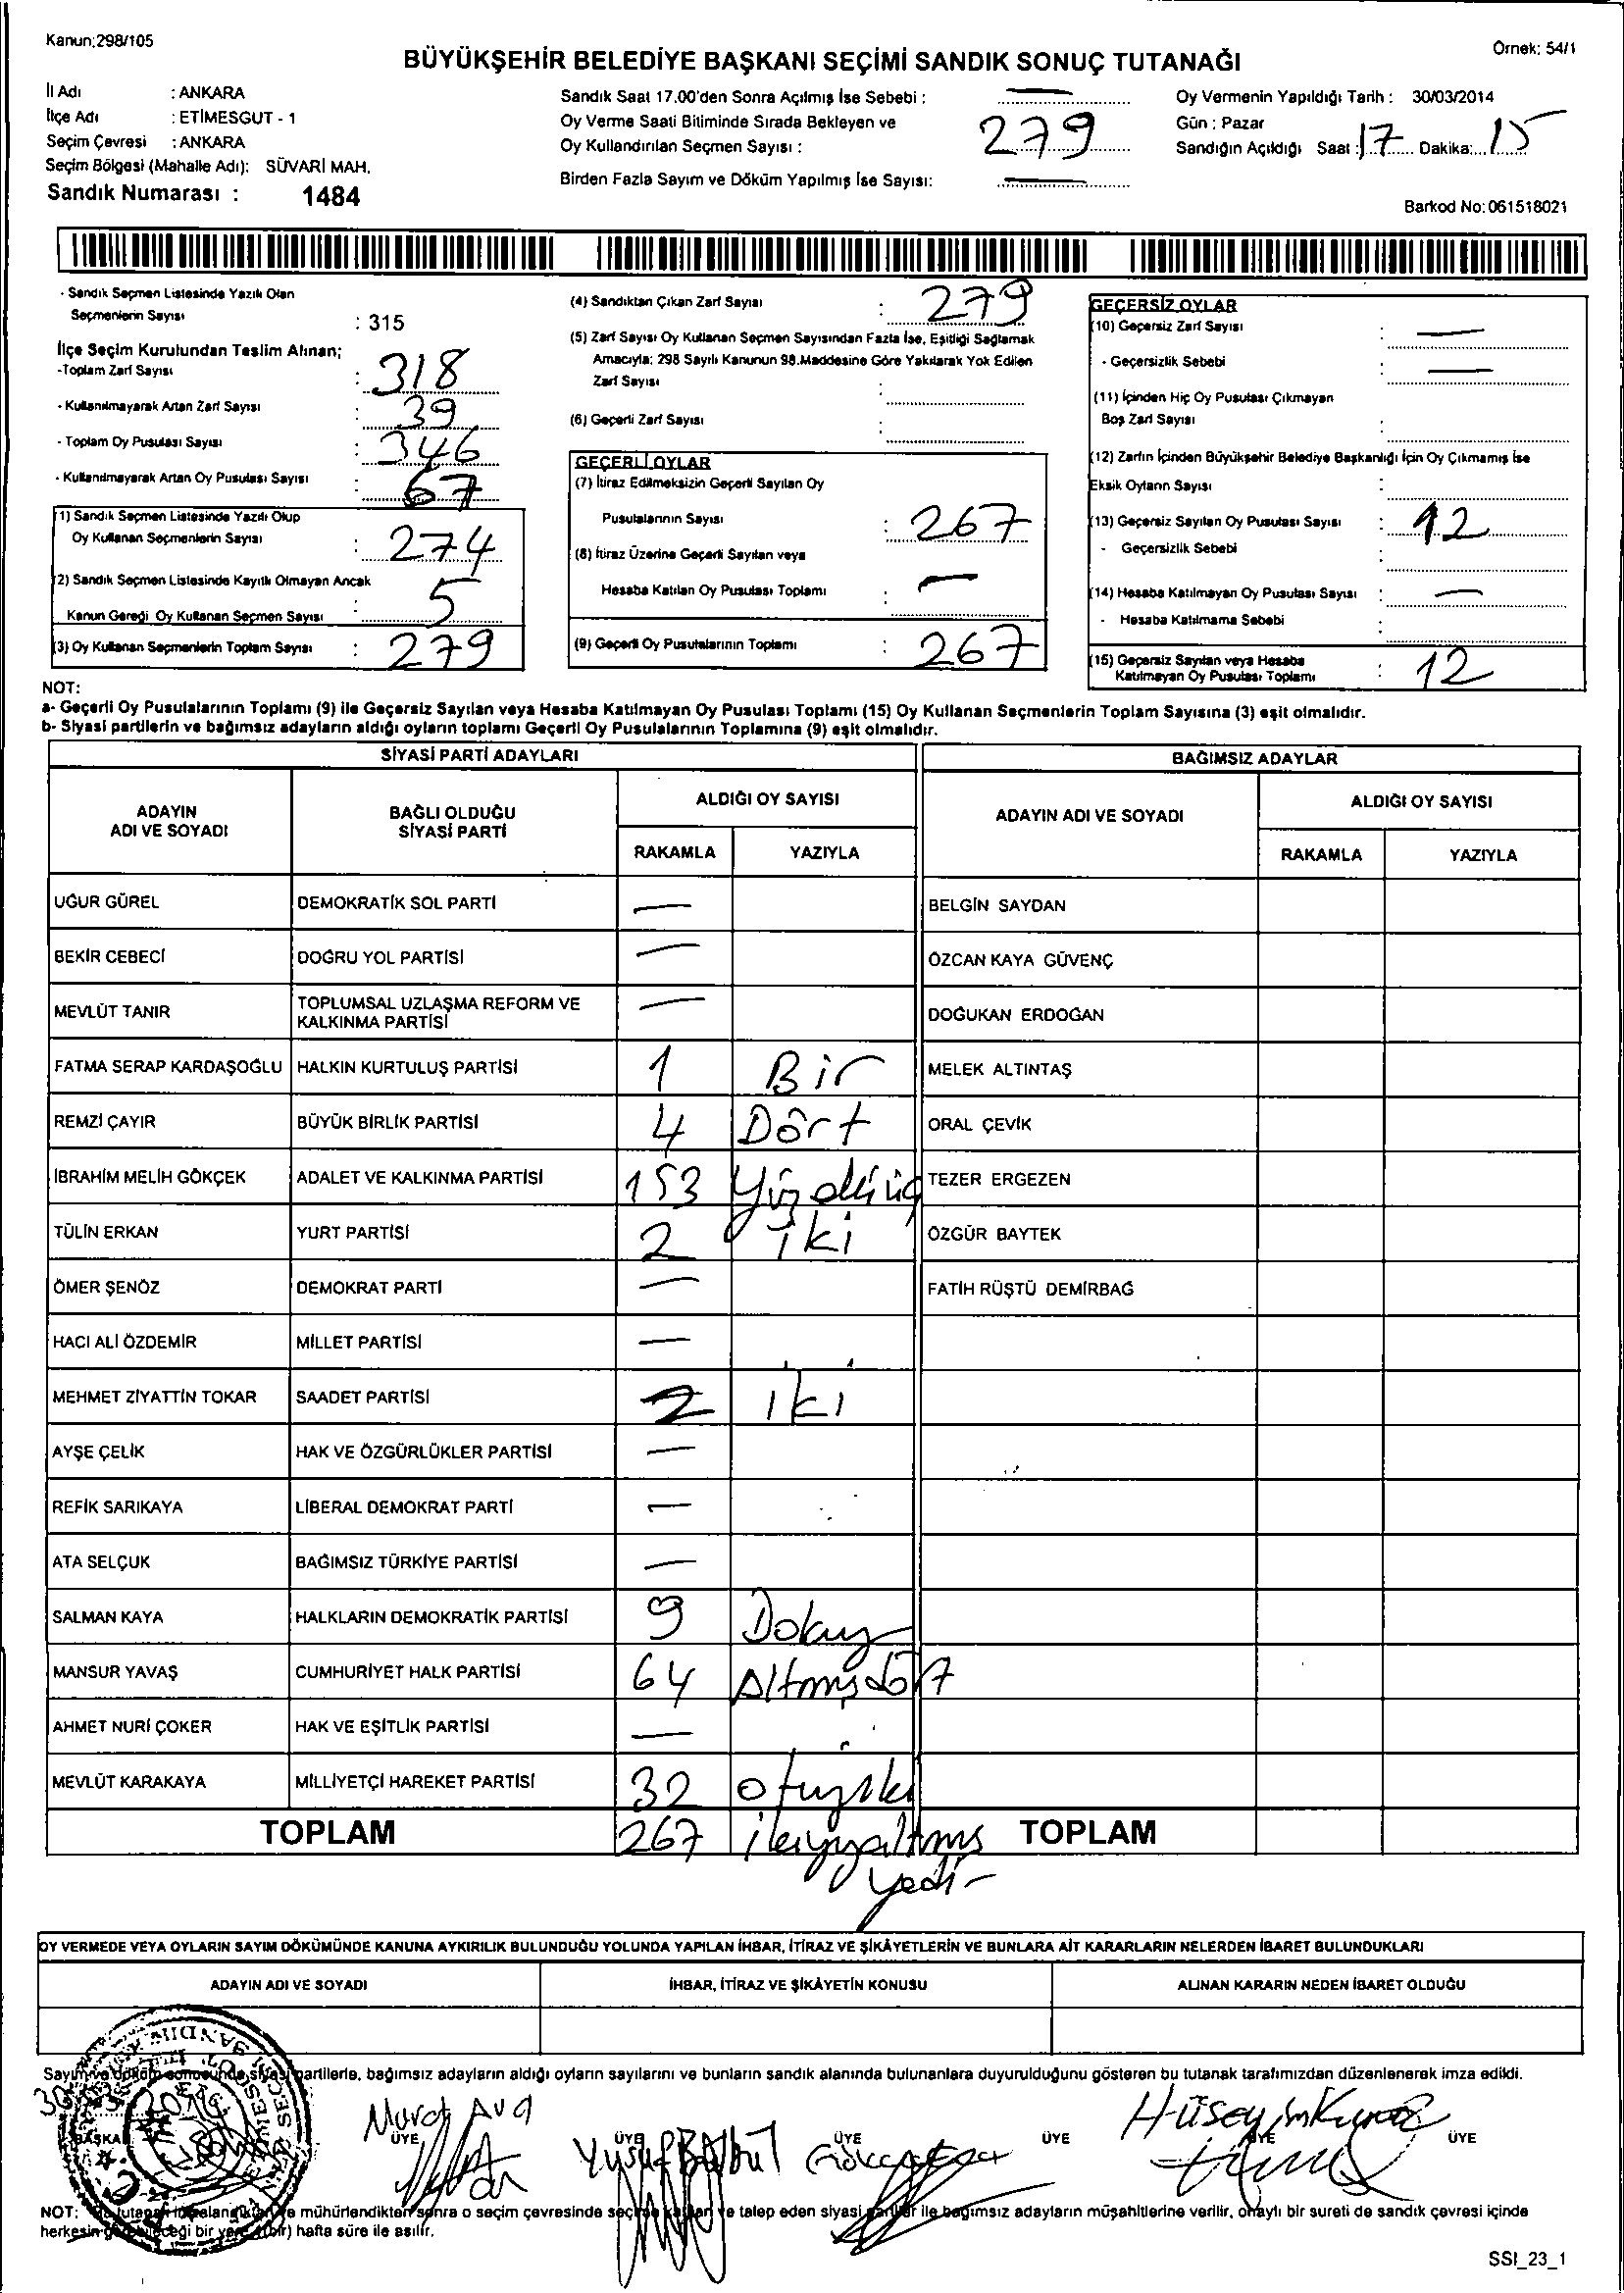 Kanun:298/105
Örnek: 54/1
BÜYÜKŞEHİR BELEDİYE BAŞKANI SEÇİMİ SANDIK SONUÇ TUTANAĞI
İl Adı : ANKARA
İlçe Adı : ETİMESGUT - 1
Seçim Çevresi : ANKARA
Seçim Bölgesi (Mahalle Adı): SÜVARİ MAH.
Sandık Numarası : 1484
Sandık Saat 17.00'den Sonra Açılmış İse Sebebi : —
Oy Verme Saati Bitiminde Sırada Bekleyen ve
Oy Kullandırılan Seçmen Sayısı : 279
Birden Fazla Sayım ve Döküm Yapılmış İse Sayısı: —
Oy Vermenin Yapıldığı Tarih : 30/03/2014
Gün : Pazar
Sandığın Açıldığı Saat : 17 Dakika: 15
Barkod No: 061518021
- Sandık Seçmen Listesinde Yazılı Olan
Seçmenlerin Sayısı : 315
İlçe Seçim Kurulundan Teslim Alınan;
-Toplam Zarf Sayısı : 318
- Kullanılmayarak Artan Zarf Sayısı : 39
- Toplam Oy Pusulası Sayısı : 346
- Kullanılmayarak Artan Oy Pusulası Sayısı : 67
(1) Sandık Seçmen Listesinde Yazılı Olup
Oy Kullanan Seçmenlerin Sayısı : 274
(2) Sandık Seçmen Listesinde Kayıtlı Olmayan Ancak
Kanun Gereği Oy Kullanan Seçmen Sayısı : 5
(3) Oy Kullanan Seçmenlerin Toplam Sayısı : 279
(4) Sandıktan Çıkan Zarf Sayısı : 279
(5) Zarf Sayısı Oy Kullanan Seçmen Sayısından Fazla İse, Eşitliği Sağlamak
Amacıyla; 298 Sayılı Kanunun 98.Maddesine Göre Yakılarak Yok Edilen
Zarf Sayısı :
(6) Geçerli Zarf Sayısı :
GEÇERLİ OYLAR
(7) İtiraz Edilmeksizin Geçerli Sayılan Oy
Pusulalarının Sayısı : 267
(8) İtiraz Üzerine Geçerli Sayılan veya
Hesaba Katılan Oy Pusulası Toplamı : —
(9) Geçerli Oy Pusulalarının Toplamı : 267
GEÇERSİZ OYLAR
(10) Geçersiz Zarf Sayısı : —
- Geçersizlik Sebebi : —
(11) İçinden Hiç Oy Pusulası Çıkmayan
Boş Zarf Sayısı :
(12) Zarfın İçinden Büyükşehir Belediye Başkanlığı İçin Oy Çıkmamış İse
Eksik Oyların Sayısı :
(13) Geçersiz Sayılan Oy Pusulası Sayısı : 12
- Geçersizlik Sebebi :
(14) Hesaba Katılmayan Oy Pusulası Sayısı : —
- Hesaba Katılmama Sebebi :
(15) Geçersiz Sayılan veya Hesaba
Katılmayan Oy Pusulası Toplamı : 12
NOT:
a- Geçerli Oy Pusulalarının Toplamı (9) ile Geçersiz Sayılan veya Hesaba Katılmayan Oy Pusulası Toplamı (15) Oy Kullanan Seçmenlerin Toplam Sayısına (3) eşit olmalıdır.
b- Siyasi partilerin ve bağımsız adayların aldığı oyların toplamı Geçerli Oy Pusulalarının Toplamına (9) eşit olmalıdır.
SİYASİ PARTİ ADAYLARI BAĞIMSIZ ADAYLAR
ADAYIN ADI VE SOYADI BAĞLI OLDUĞU SİYASİ PARTİ ALDIĞI OY SAYISI ADAYIN ADI VE SOYADI ALDIĞI OY SAYISI
RAKAMLA YAZIYLA RAKAMLA YAZIYLA
UĞUR GÜREL DEMOKRATİK SOL PARTİ — BELGİN SAYDAN
BEKİR CEBECİ DOĞRU YOL PARTİSİ — ÖZCAN KAYA GÜVENÇ
MEVLÜT TANIR TOPLUMSAL UZLAŞMA REFORM VE KALKINMA PARTİSİ — DOĞUKAN ERDOĞAN
FATMA SERAP KARDAŞOĞLU HALKIN KURTULUŞ PARTİSİ 1 Bir MELEK ALTINTAŞ
REMZİ ÇAYIR BÜYÜK BİRLİK PARTİSİ 4 Dört ORAL ÇEVİK
İBRAHİM MELİH GÖKÇEK ADALET VE KALKINMA PARTİSİ 153 Yüzelliüç TEZER ERGEZEN
TÜLİN ERKAN YURT PARTİSİ 2 iki ÖZGÜR BAYTEK
ÖMER ŞENÖZ DEMOKRAT PARTİ — FATİH RÜŞTÜ DEMİRBAĞ
HACI ALİ ÖZDEMİR MİLLET PARTİSİ —
MEHMET ZİYATTİN TOKAR SAADET PARTİSİ 2 iki
AYŞE ÇELİK HAK VE ÖZGÜRLÜKLER PARTİSİ —
REFİK SARIKAYA LİBERAL DEMOKRAT PARTİ —
ATA SELÇUK BAĞIMSIZ TÜRKİYE PARTİSİ —
SALMAN KAYA HALKLARIN DEMOKRATİK PARTİSİ 9 Dokuz
MANSUR YAVAŞ CUMHURİYET HALK PARTİSİ 64 Altmışdört
AHMET NURİ ÇOKER HAK VE EŞİTLİK PARTİSİ —
MEVLÜT KARAKAYA MİLLİYETÇİ HAREKET PARTİSİ 32 otuziki
TOPLAM 267 ikiyüzaltmış yedi- TOPLAM
OY VERMEDE VEYA OYLARIN SAYIM DÖKÜMÜNDE KANUNA AYKIRILIK BULUNDUĞU YOLUNDA YAPILAN İHBAR, İTİRAZ VE ŞİKÂYETLERİN VE BUNLARA AİT KARARLARIN NELERDEN İBARET BULUNDUKLARI
ADAYIN ADI VE SOYADI İHBAR, İTİRAZ VE ŞİKÂYETİN KONUSU ALINAN KARARIN NEDEN İBARET OLDUĞU
Sayım ve döküm sonucunda siyasi partilerle, bağımsız adayların aldığı oyların sayılarını ve bunların sandık alanında bulunanlara duyurulduğunu gösteren bu tutanak tarafımızdan düzenlenerek imza edildi.
Murat Yusuf Hüseyin
BAŞKAN ÜYE ÜYE ÜYE ÜYE ÜYE ÜYE
NOT: Bu tutanak imzalandıktan ve mühürlendikten sonra o seçim çevresinde seçime katılan ve talep eden siyasi partiler ile bağımsız adayların müşahitlerine verilir, onaylı bir sureti de sandık çevresi içinde
herkesin görebileceği bir yere (bir) hafta süre ile asılır.
SSI_23_1